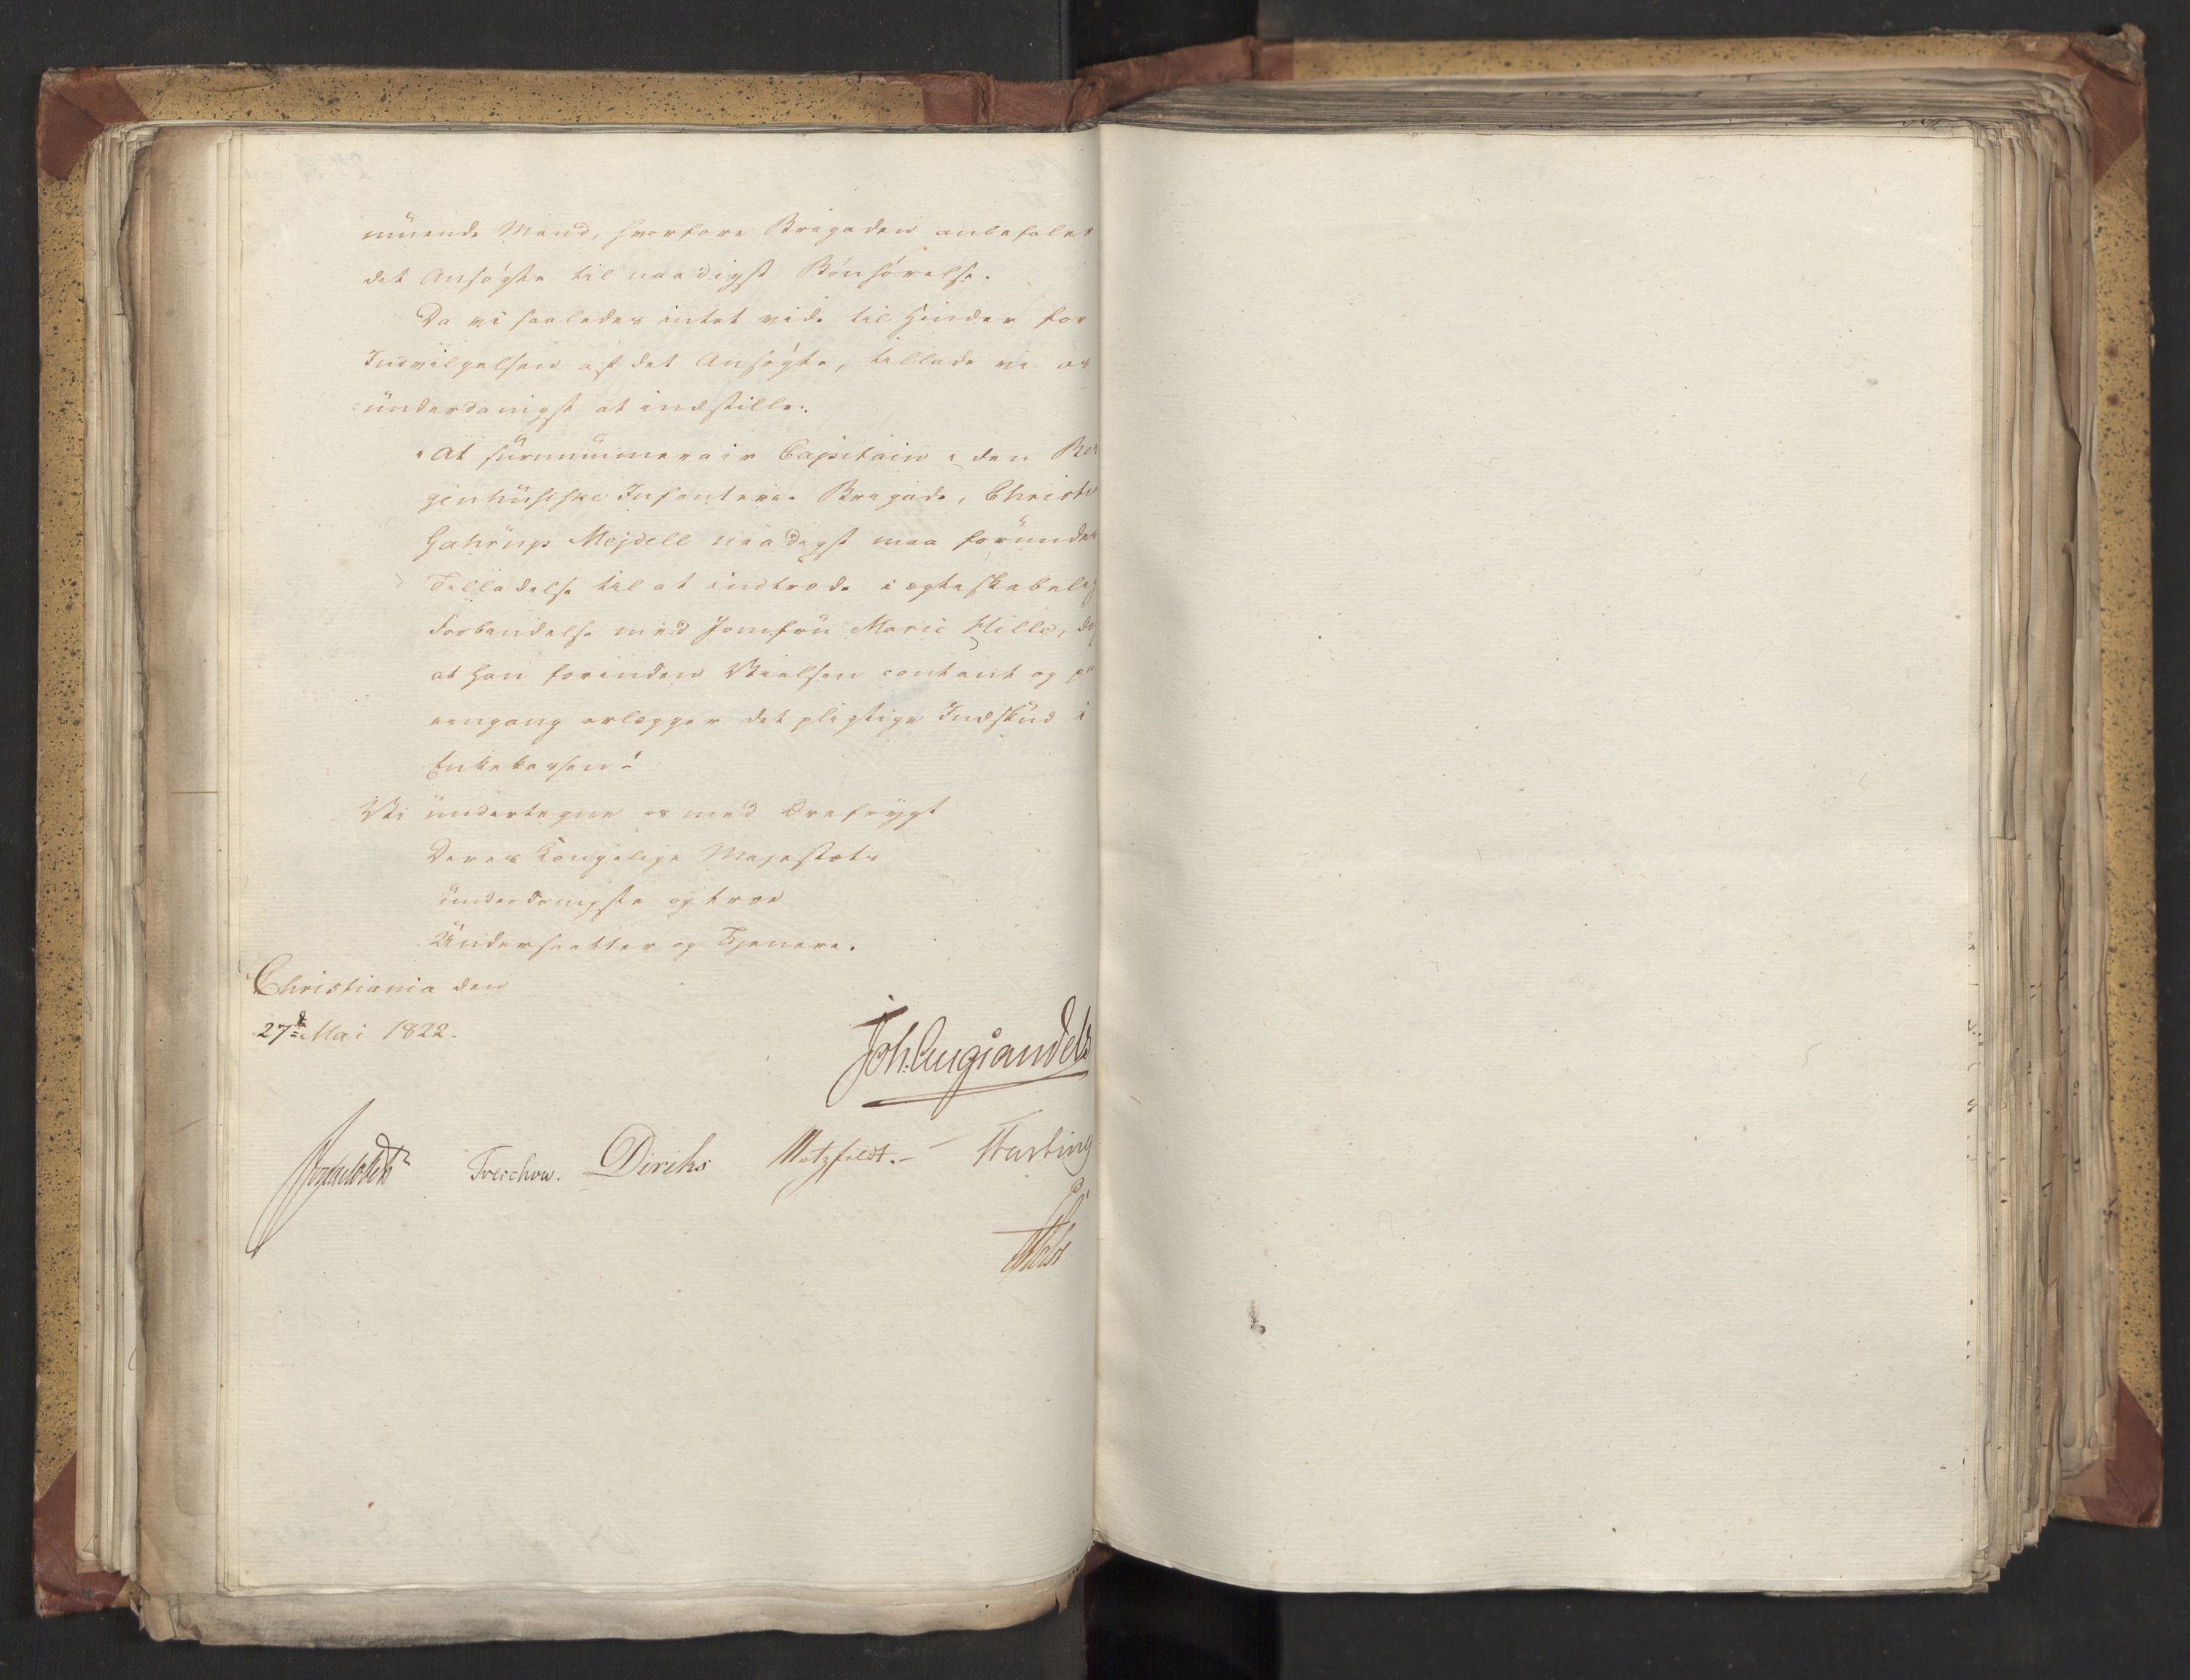 nüende Mand, hvorfore Brigaden anbefaler
det Ansøgte til naadigst Bønhørelse.
Da vi saaledes intet vide til Hinder for
Indvilgelsen af det Ansøgte, tillade vi os
ünderdanigst at indstille:
"At sürnümerair Capitain i den Ber
genhüsiske Infanterie Brigade, Christi
Gahrüp Mejdell naadigst maa forundes
Tilladelse til at indtræde i ægteskabelig
Forbindelse med Jomfrü Marie Hille, dog
at han forinden Vielsen contant og paa
eengang erlægger det pligtige Indsküd i
Enkekassen"
Vi ündertegne os med Ærefrygt
Deres Kongelige Majestæts
ünderdanigste og troe
Ündersaatter og Tjenere.
Christiania den
27de Mai 1822.
Joh. Aug. Sandels
Treschow. Diriks Motzfeldt.- Fasting
Holst